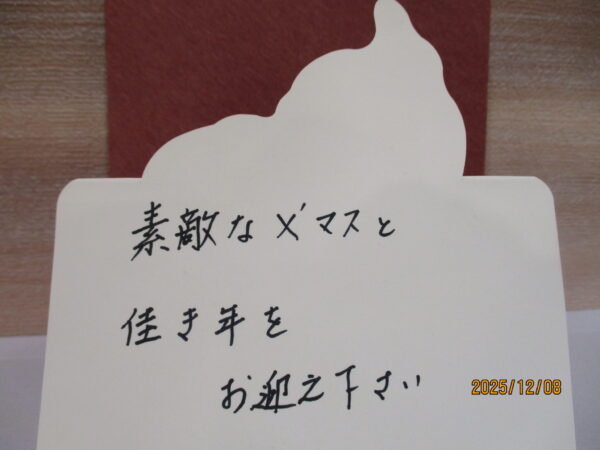 素敵なX'マスと
佳き年を
お迎え下さい
2025/12/08